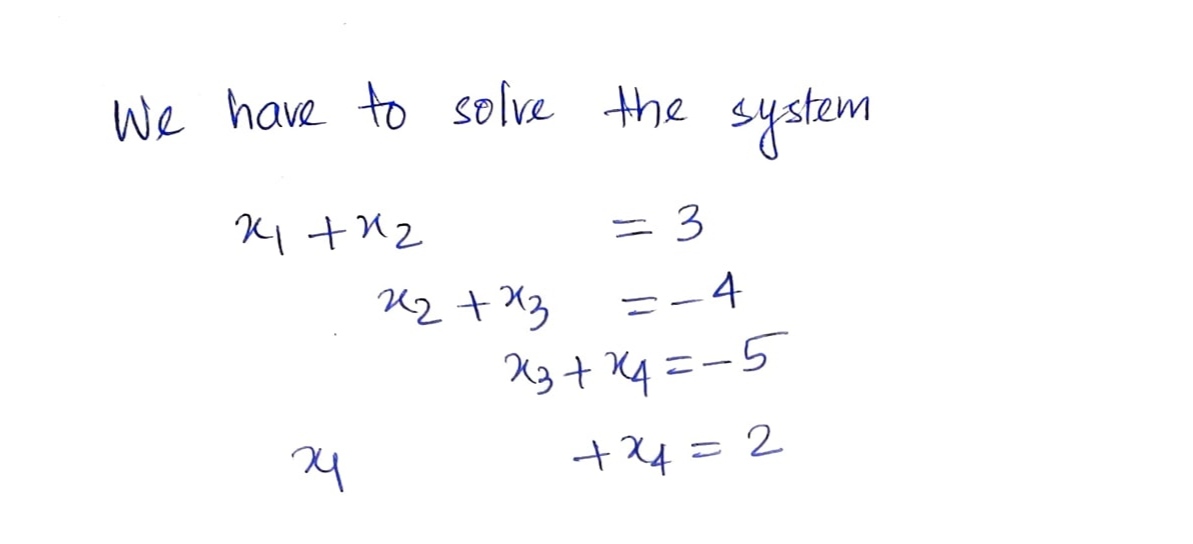 We have to solve the system
x₁ + x₂ = 3
x₂ + x₃ = -4
x₃ + x₄ = -5
x₁ + x₄ = 2